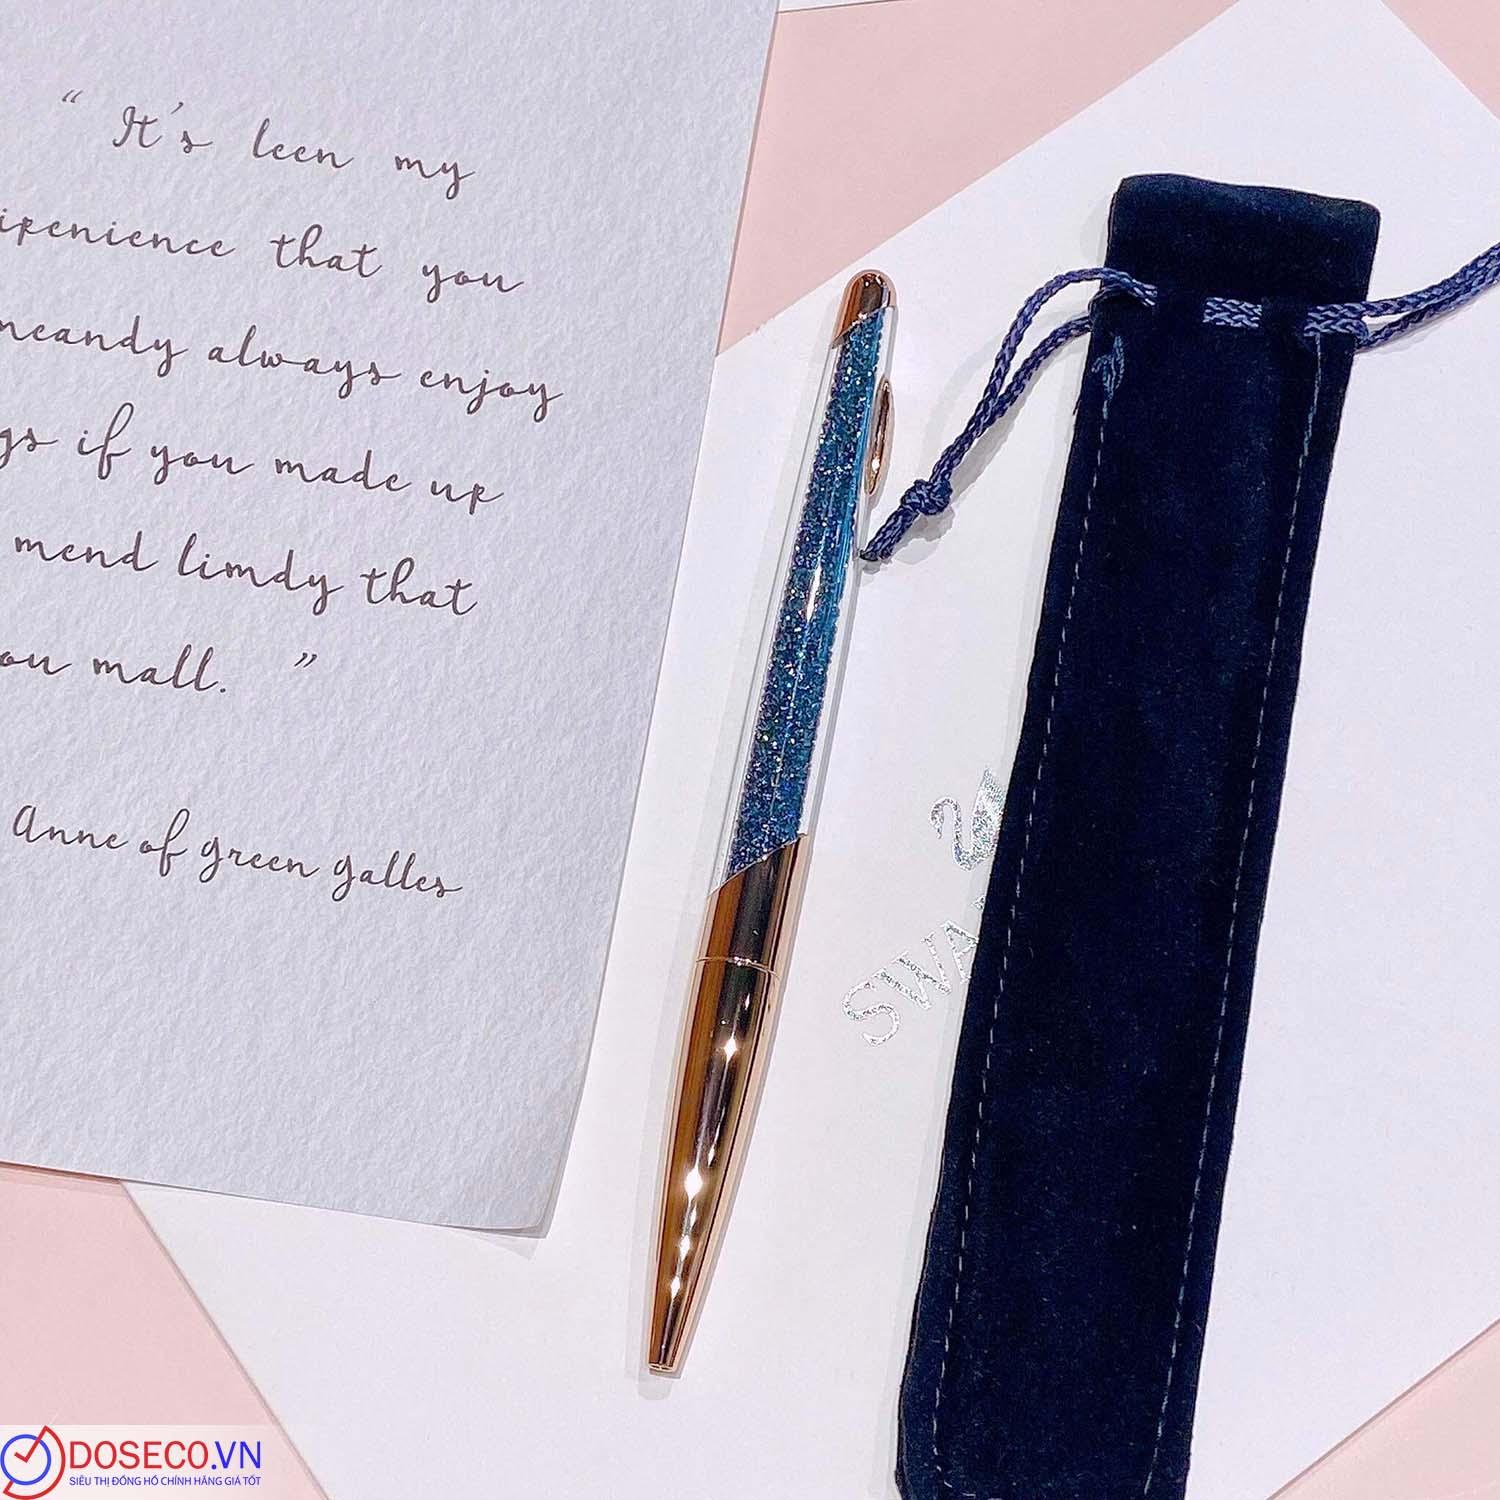 “ It's leen my
ipenience that you
neandy always enjoy
gs if you made up
mend limdy that
ou mall. ”
Anne of green galles
SWA
DOSECO.VN
SIÊU THỊ ĐỒNG HỒ CHÍNH HÃNG GIÁ TỐT